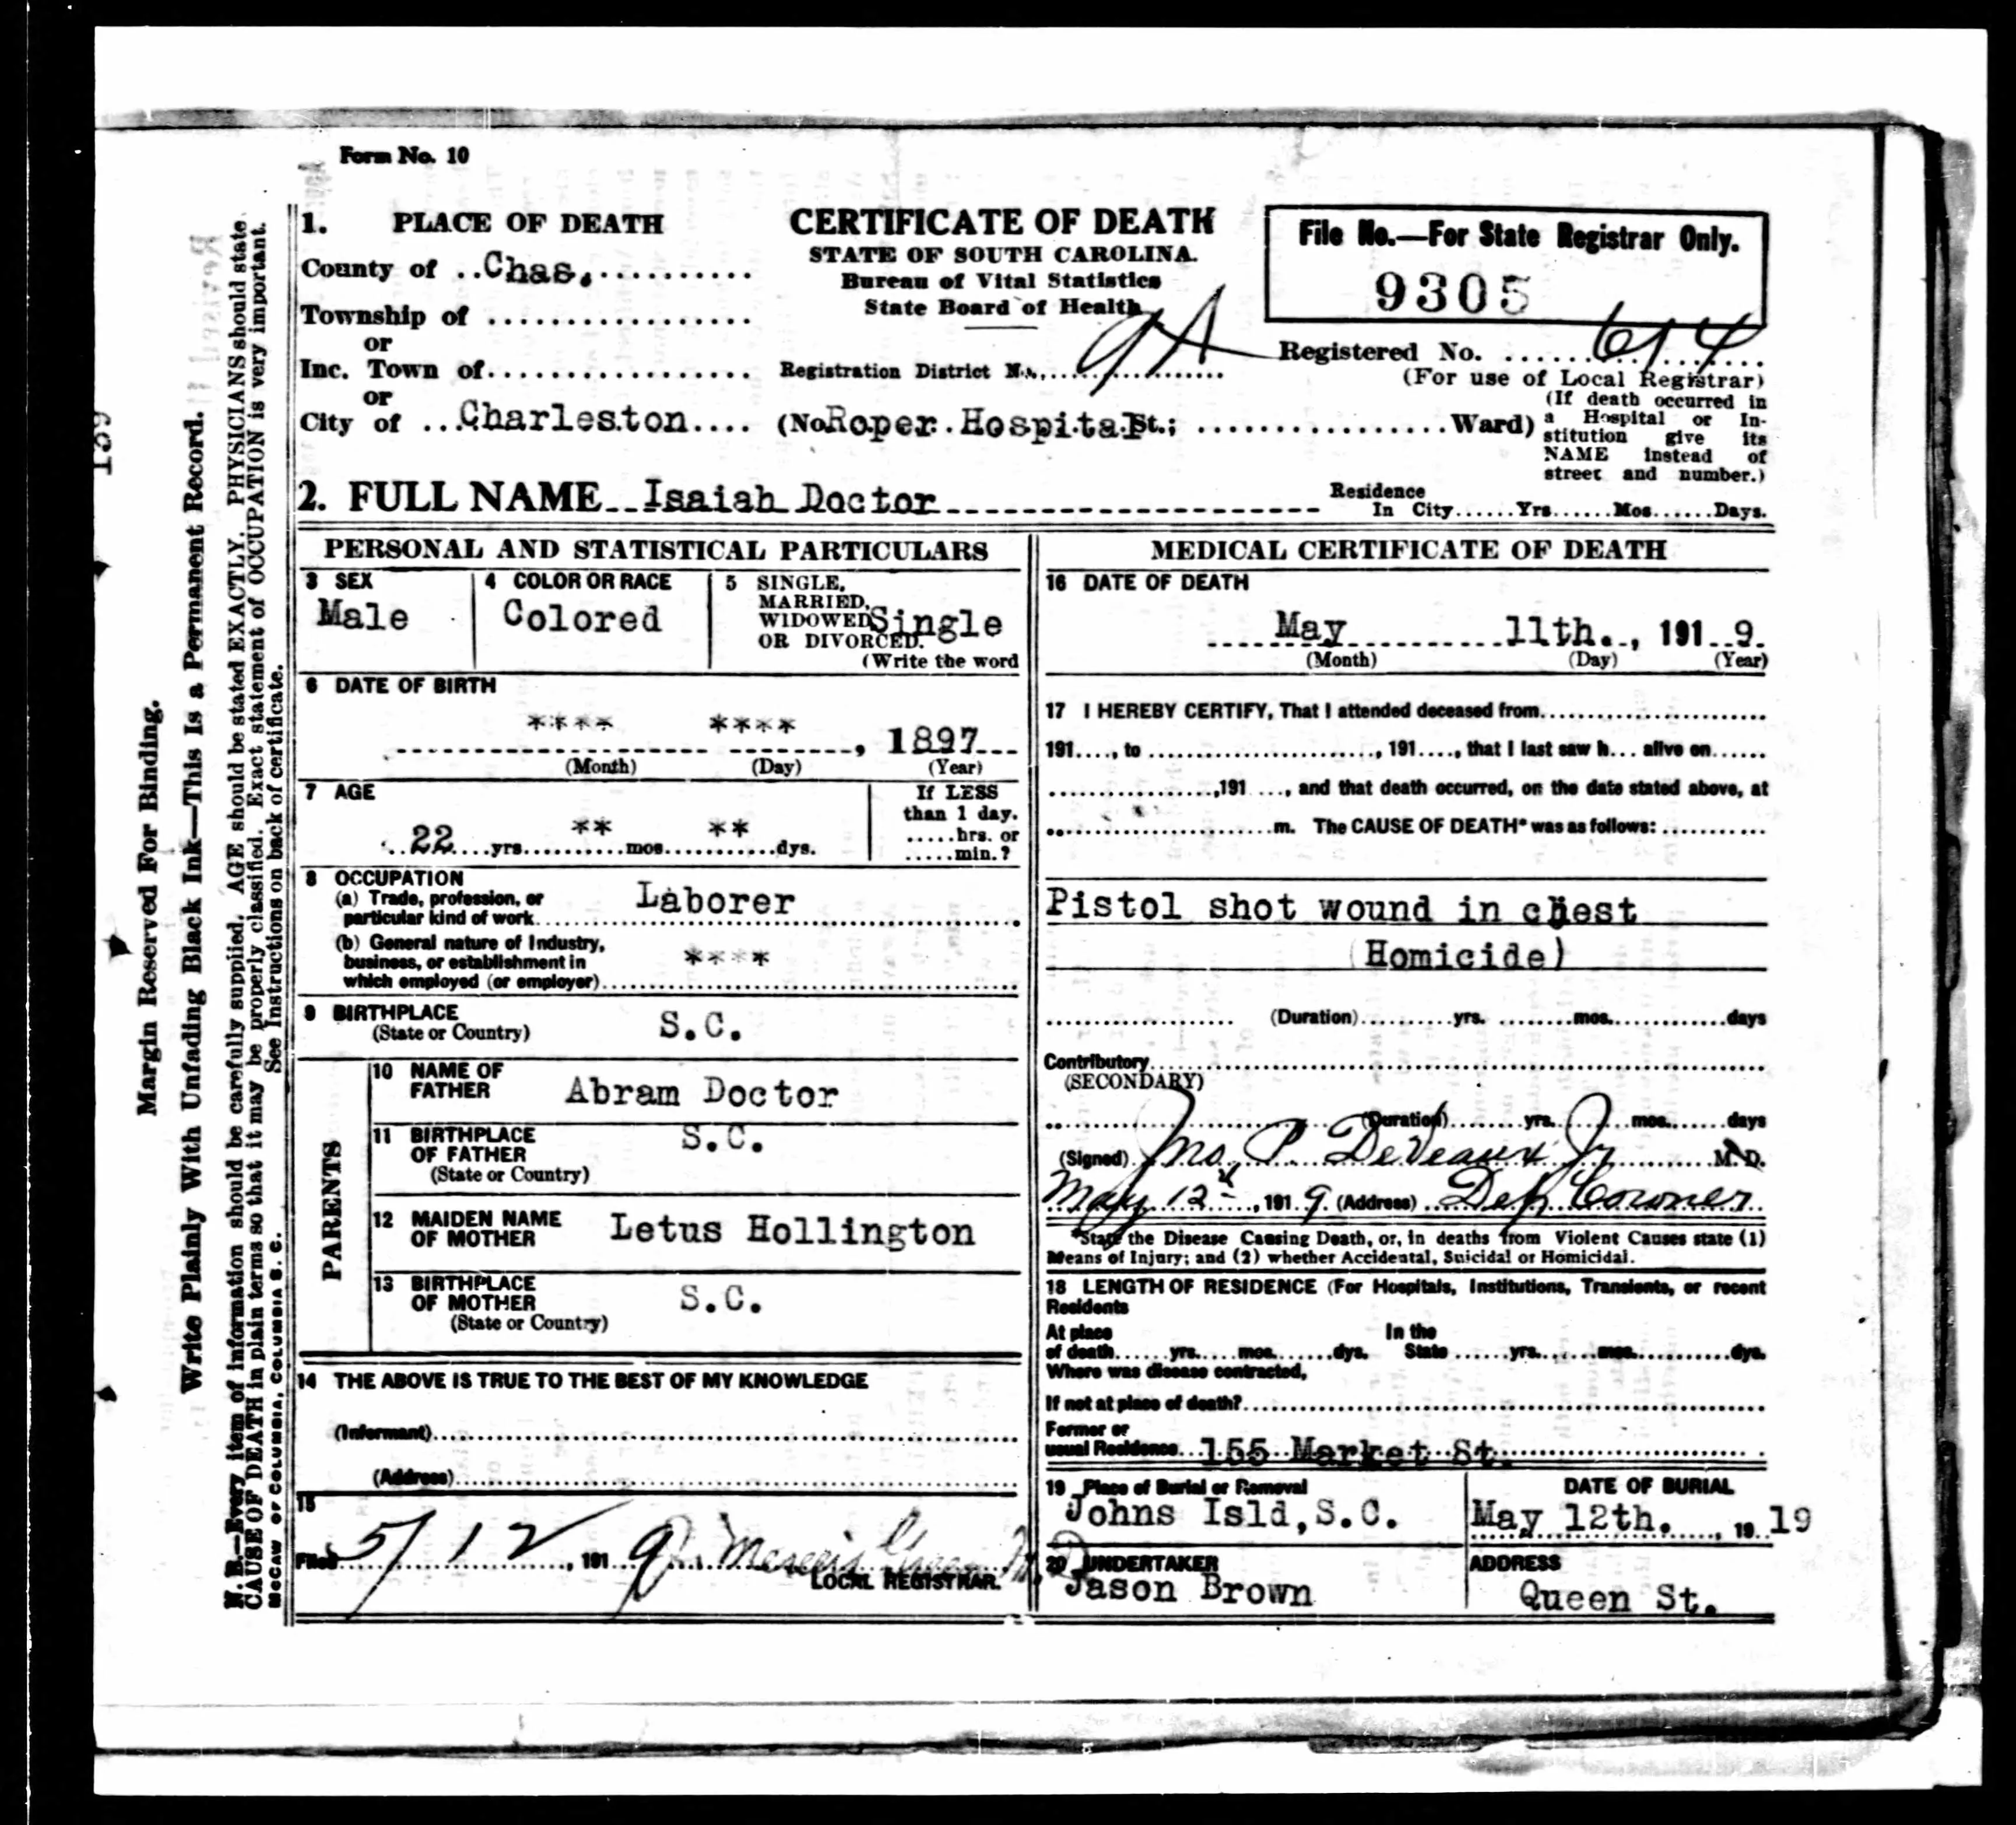 Form No. 10
1. PLACE OF DEATH
County of ..Chas...........
Township of ..................
or
Inc. Town of..................
or
City of ...Charleston....
CERTIFICATE OF DEATH
STATE OF SOUTH CAROLINA.
Bureau of Vital Statistics
State Board of Health
Registration District No.....9A..........
(No.Roper.Hospital St.; ..................Ward)
File No.—For State Registrar Only.
9305
Registered No. ......614....
(For use of Local Registrar)
(If death occurred in
a Hospital or In-
stitution give its
NAME instead of
street and number.)
2. FULL NAME Isaiah Doctor
Residence
In City......Yrs......Mos......Days.
PERSONAL AND STATISTICAL PARTICULARS
3 SEX
Male
4 COLOR OR RACE
Colored
5 SINGLE,
MARRIED,
WIDOWED
OR DIVORCED.
Single
(Write the word
6 DATE OF BIRTH
**** ****, 1897
(Month) (Day) (Year)
7 AGE
22 yrs. ** mos. ** dys.
If LESS
than 1 day.
.....hrs. or
.....min.?
8 OCCUPATION
(a) Trade, profession, or
particular kind of work
Laborer
(b) General nature of Industry,
business, or establishment in
which employed (or employer)
****
9 BIRTHPLACE
(State or Country)
S.C.
PARENTS
10 NAME OF
FATHER
Abram Doctor
11 BIRTHPLACE
OF FATHER
(State or Country)
S.C.
12 MAIDEN NAME
OF MOTHER
Letus Hollington
13 BIRTHPLACE
OF MOTHER
(State or Country)
S.C.
14 THE ABOVE IS TRUE TO THE BEST OF MY KNOWLEDGE
(Informant)
(Address)
15
Filed 5/12, 1919
LOCAL REGISTRAR.
MEDICAL CERTIFICATE OF DEATH
16 DATE OF DEATH
May 11th., 191 9.
(Month) (Day) (Year)
17 I HEREBY CERTIFY, That I attended deceased from
191...., to ......................., 191...., that I last saw h... alive on......
..................,191 ...., and that death occurred, on the date stated above, at
........................m. The CAUSE OF DEATH* was as follows: ...........
Pistol shot wound in chest
(Homicide)
(Duration)..........yrs. ........mos............days
Contributory
(SECONDARY)
(Duration)........yrs.........mos.......days
(Signed) Jno. P. DeVeaux Jr M.D.
May 12, 191 9. (Address) Dep Coroner
*State the Disease Causing Death, or, in deaths from Violent Causes state (1)
Means of Injury; and (2) whether Accidental, Suicidal or Homicidal.
18 LENGTH OF RESIDENCE (For Hospitals, Institutions, Transients, or recent
Residents
At place
of death......yrs.....mos.......dys.
In the
State ......yrs.......mos...........dys.
Where was disease contracted,
If not at place of death?
Former or
usual Residence 155 Market St.
19 Place of Burial or Removal
Johns Isld,S.C.
DATE OF BURIAL
May 12th. , 19 19
20 UNDERTAKER
Jason Brown
ADDRESS
Queen St.
Margin Reserved For Binding.
Write Plainly With Unfading Black Ink—This is a Permanent Record.
N. B.—Every item of information should be carefully supplied. AGE should be stated EXACTLY. PHYSICIANS should state
CAUSE OF DEATH in plain terms so that it may be properly classified. Exact statement of OCCUPATION is very important.
See Instructions on back of certificate.
McCAW OF COLUMBIA, COLUMBIA S. C.